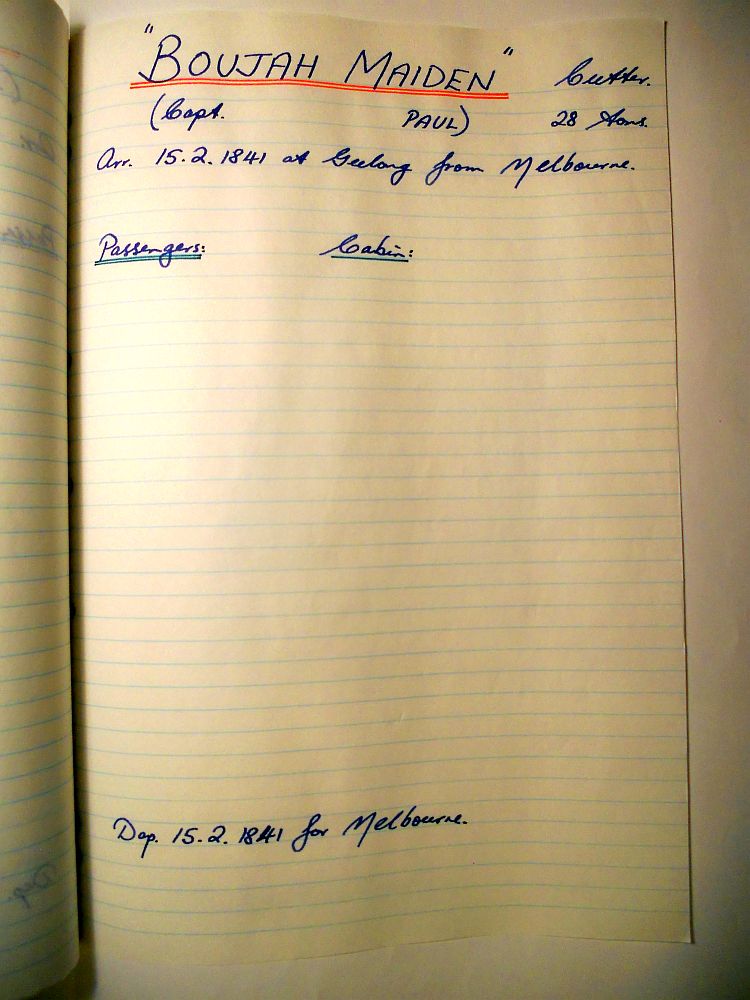 "BOUJAH MAIDEN" Cutter.
(Capt. PAUL) 28 Tons.
Arr. 15.2.1841 at Geelong from Melbourne.
Passengers: Cabin:
Dep. 15.2.1841 for Melbourne.